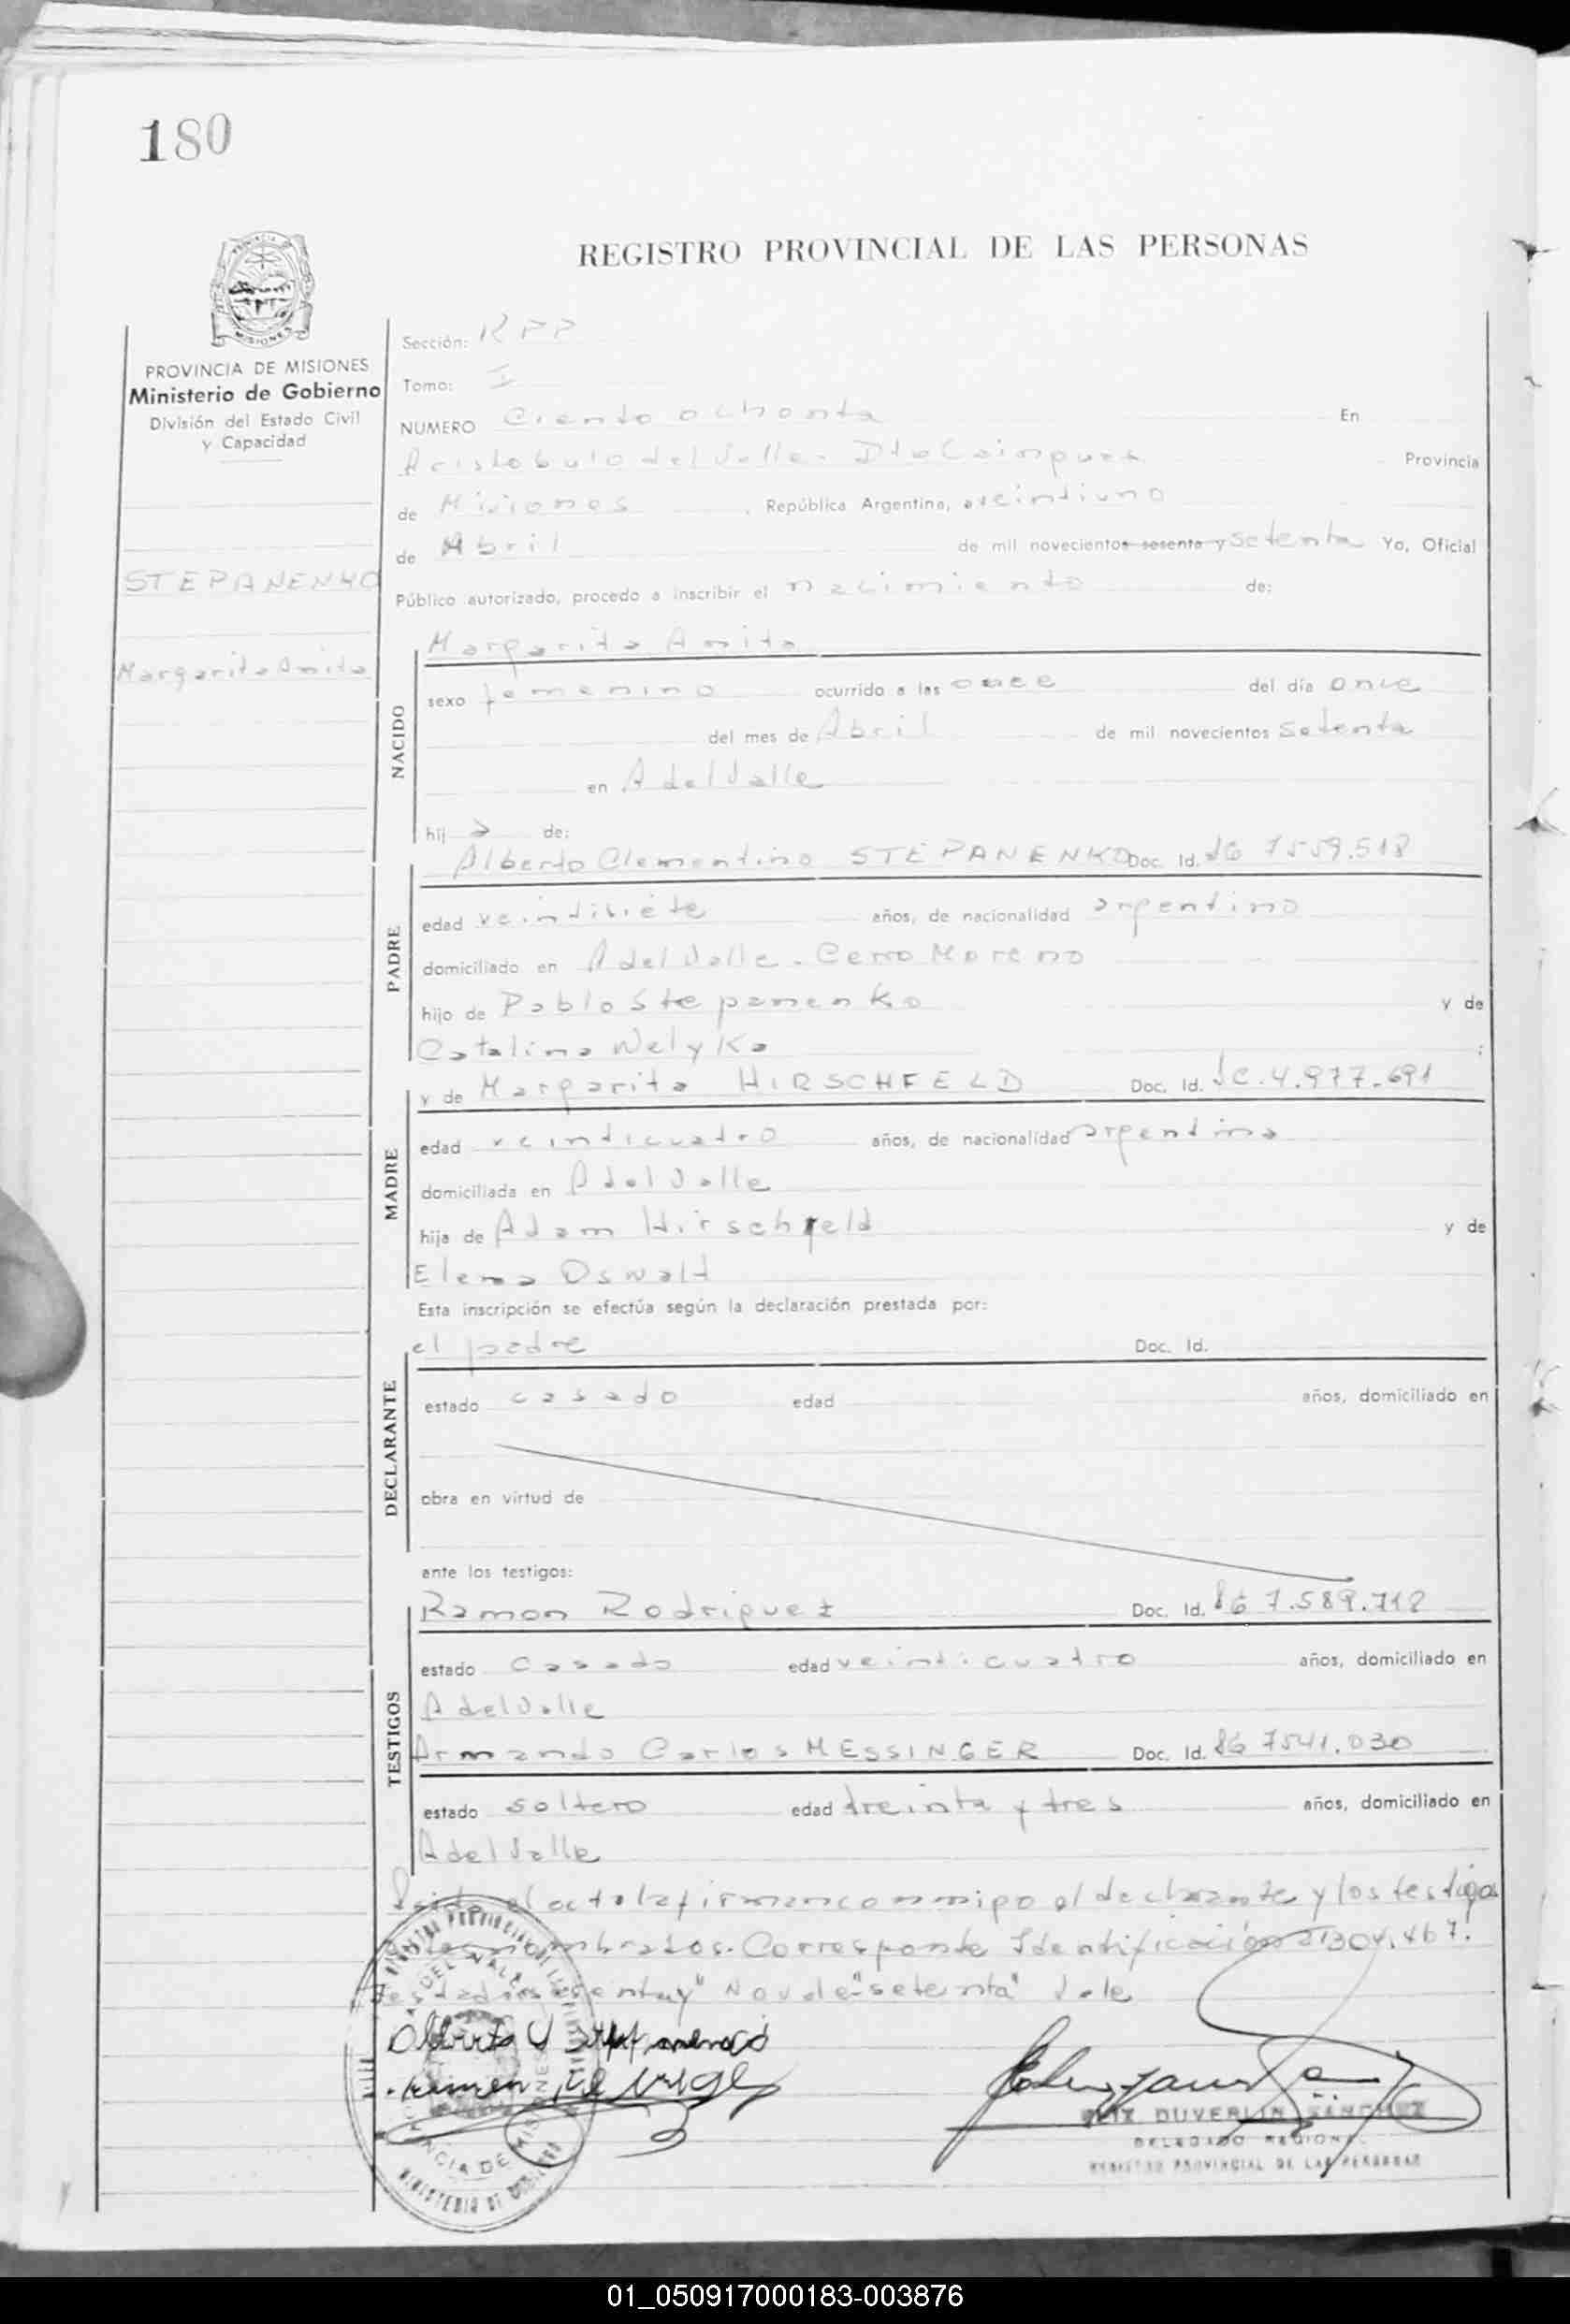 180
REGISTRO PROVINCIAL DE LAS PERSONAS
PROVINCIA DE MISIONES
Ministerio de Gobierno
División del Estado Civil
y Capacidad
STEPANENKO
Margarita Anita
Sección: RPP
Tomo: I
NUMERO Ciento ochenta En
Aristobulo del Valle - Dto Cainguas Provincia
de Misiones, República Argentina, a veintiuno
de Abril de mil novecientos sesenta y setenta Yo, Oficial
Público autorizado, procedo a inscribir el nacimiento de:
NACIDO
Margarita Anita
sexo femenino ocurrido a las once del día once
del mes de Abril de mil novecientos setenta
en A del Valle
hij a de:
PADRE
Alberto Clementino STEPANENKO Doc. Id. 7559.518
edad veintisiete años, de nacionalidad argentino
domiciliado en A del Valle - Cerro Moreno
hijo de Pablo Stepanenko y de
Catalina Welyka ;
MADRE
y de Margarita HIRSCHFELD Doc. Id. LC. 4.977.691
edad veinticuatro años, de nacionalidad argentina
domiciliada en A del Valle
hija de Adam Hirschfeld y de
Elena Oswalt
Esta inscripción se efectúa según la declaración prestada por:
DECLARANTE
el padre Doc. Id.
estado casado edad años, domiciliado en
obra en virtud de
ante los testigos:
TESTIGOS
Ramon Rodriguez Doc. Id. 7.589.712
estado casado edad veinticuatro años, domiciliado en
A del Valle
Armando Carlos MESSINGER Doc. Id. 7541.030
estado soltero edad treinta y tres años, domiciliado en
A del Valle
Leida el acta la firman conmigo el declarante y los testigos
nombrados. Corresponde Identificación 21304.467.
"setenta" Vale
DUVERLIN SANCHEZ
DELEGADO REGIONAL
REGISTRO PROVINCIAL DE LAS PERSONAS
01_050917000183-003876